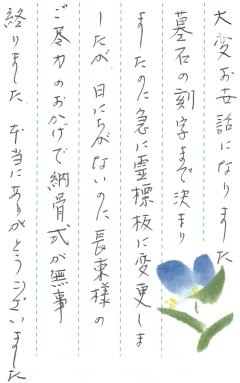 大変お世話になりました
墓石の刻字まで決まり
ましたのに急に霊標板に変更しま
したが、日にちがないのに長東様の
ご尽力のおかげで納骨式が無事
終りました。本当にありがとうございました